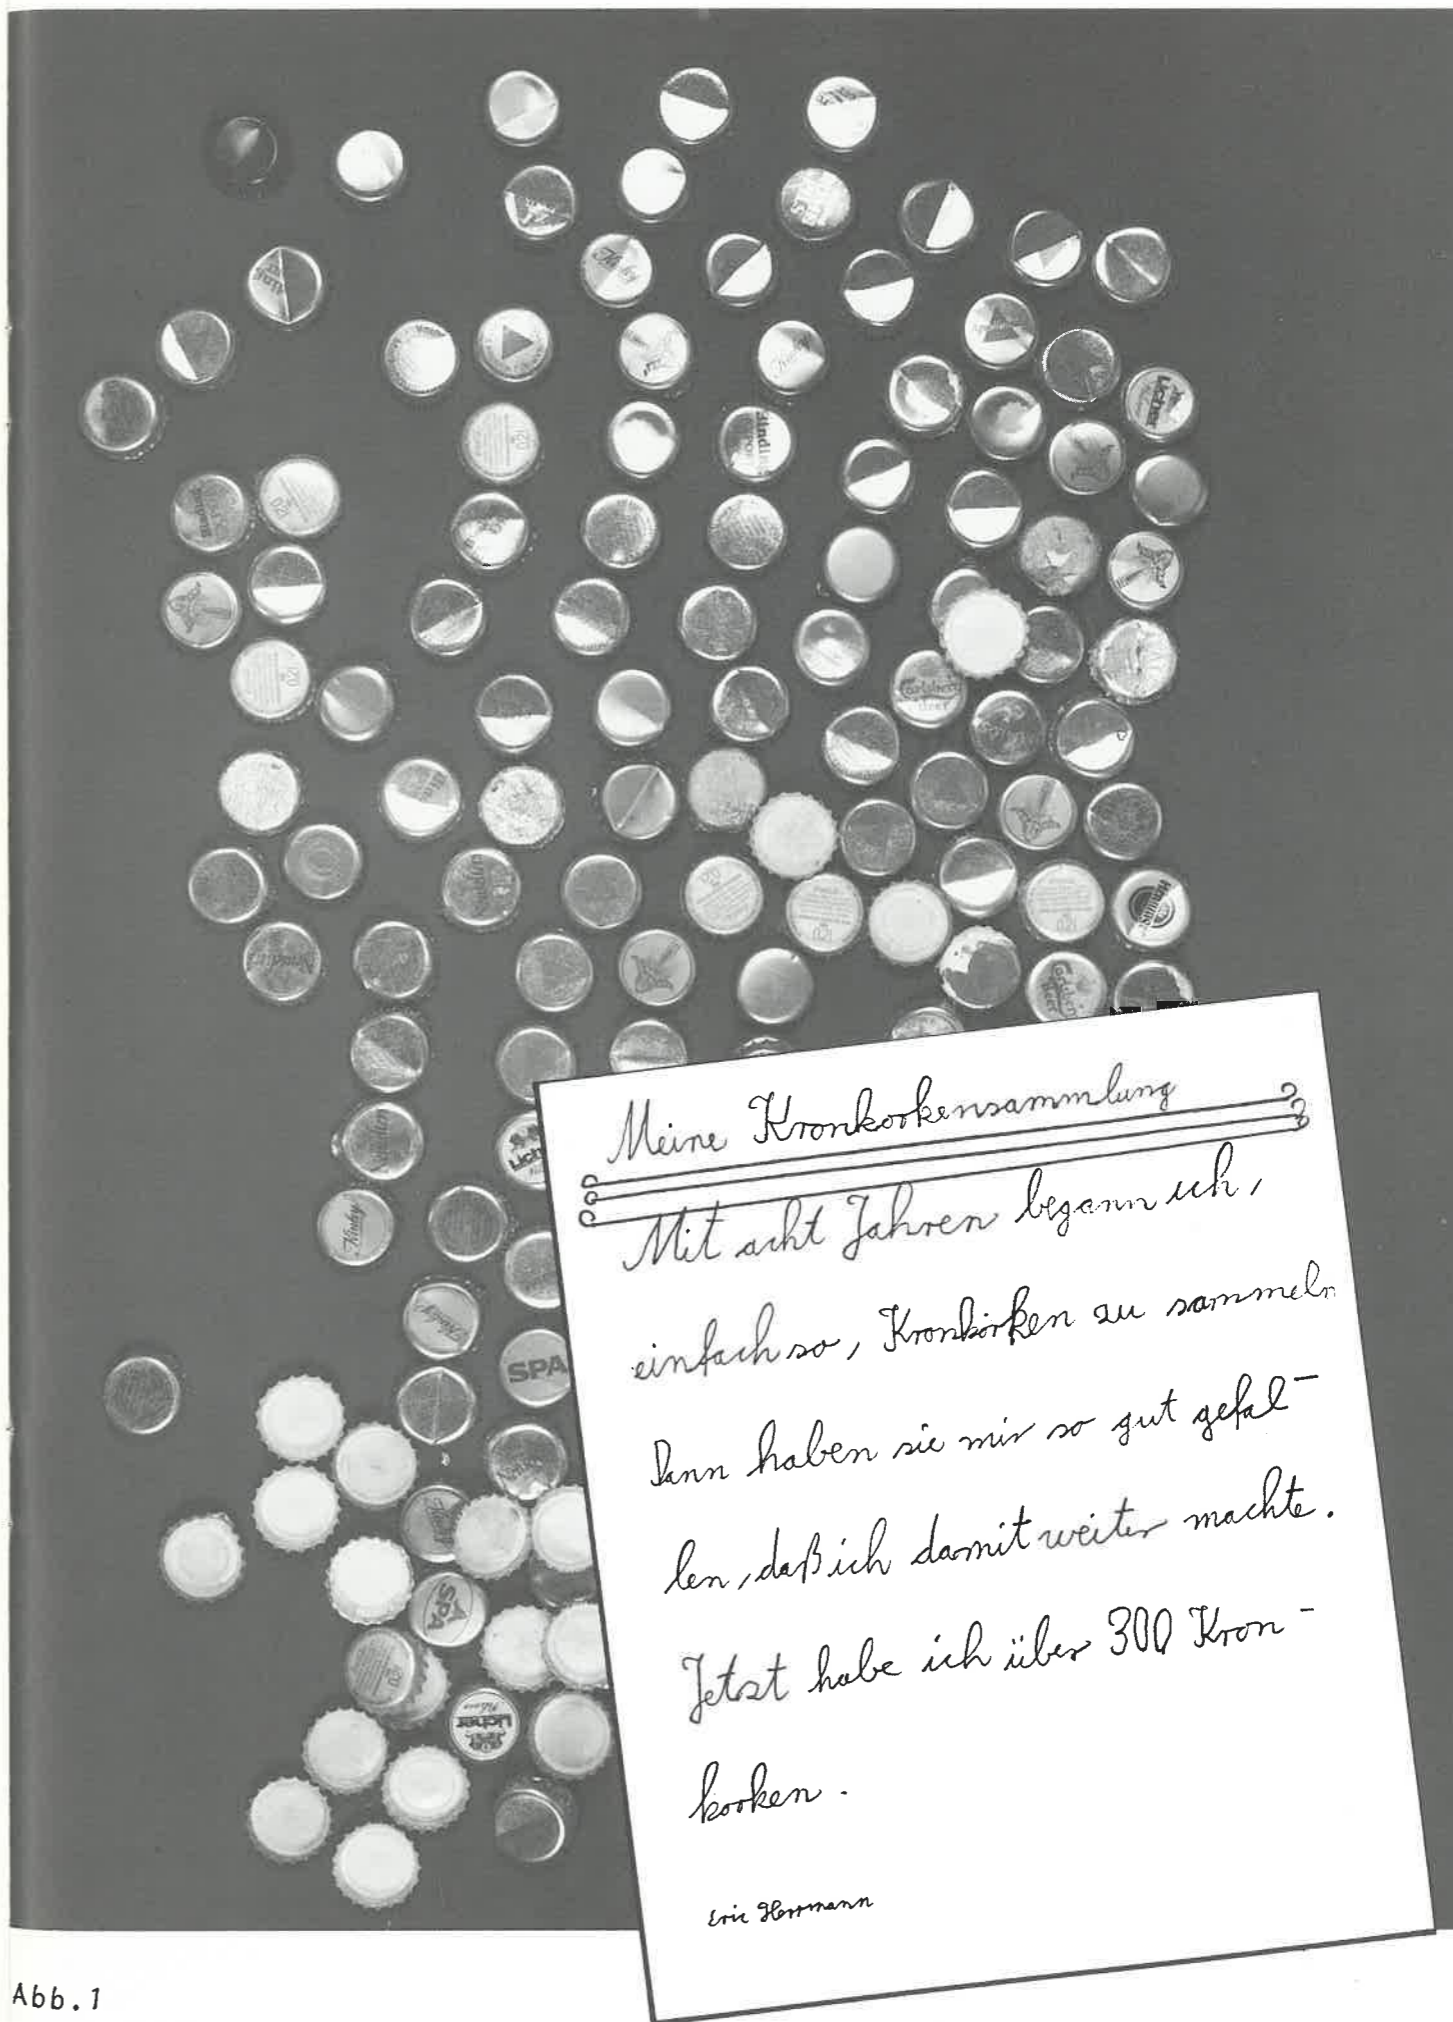 Licher
SPA
SPA
Licher
Meine Kronkorkensammlung
Mit acht Jahren begann ich,
einfach so, Kronkorken zu sammeln
Dann haben sie mir so gut gefal-
len, daß ich damit weiter machte.
Jetzt habe ich über 300 Kron-
korken.
Eric Herrmann
Abb.1